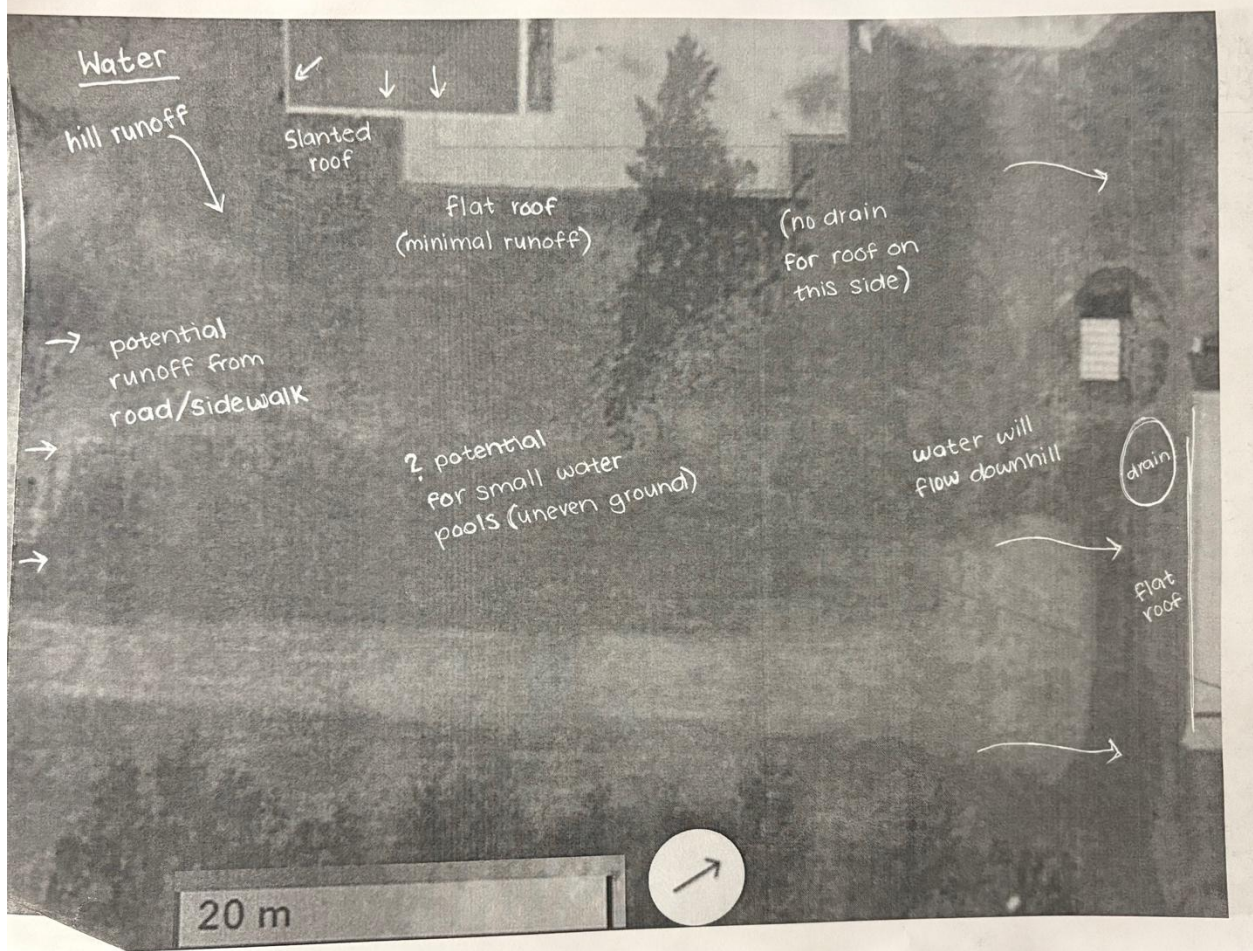 Water
hill runoff
Slanted
roof
flat roof
(minimal runoff)
(no drain
for roof on
this side)
potential
runoff from
road/sidewalk
? potential
for small water
pools (uneven ground)
water will
flow downhill
drain
flat
roof
20 m